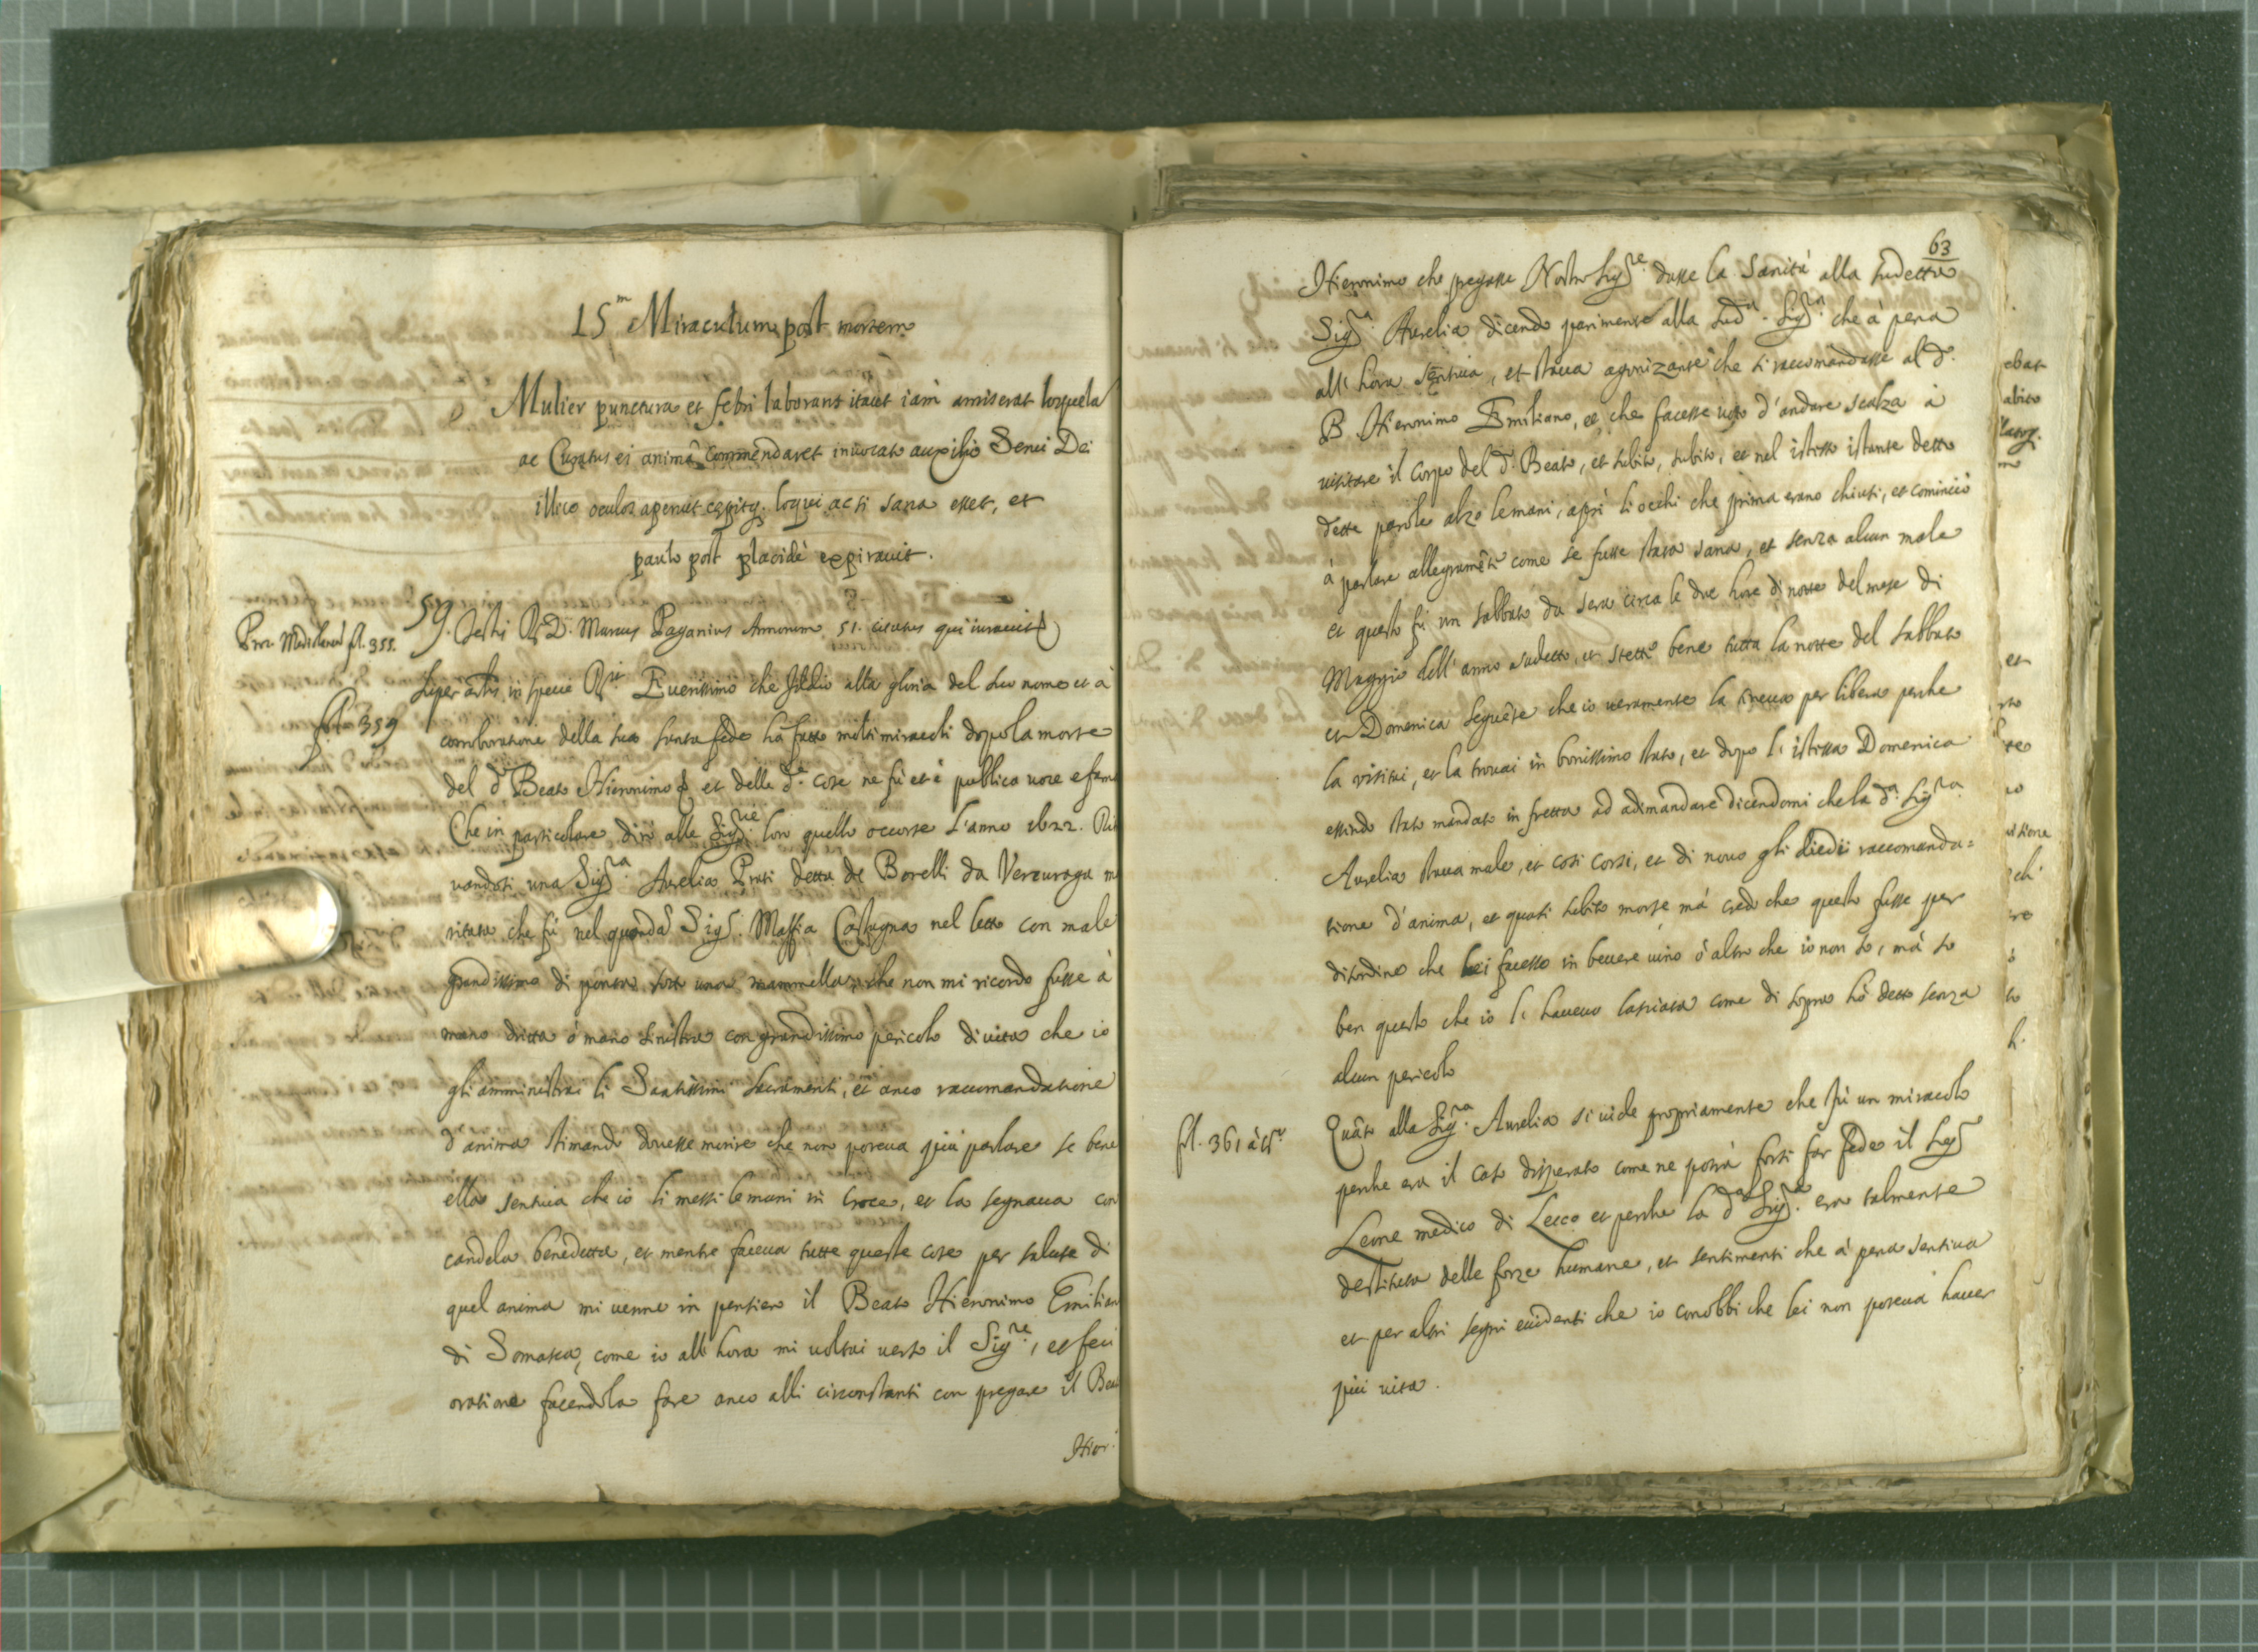 15.m Miraculum post mortem
Mulier punctura et febri laborans itaut iam amiserat loquela
ac Curatus ei animã Commendaret inuocato auxilio Serui Dei
illico oculos aperuit cępitq. loqui ac si sana esset, et
paulo post placidè expirauit.
Proc. Mediolanẽ fl. 355.
59. Testis R. D. Marcus Paganius Annorum 51. citatus qui iurauit
super artis in specie Rit. E uerissimo che Iddio alla gloria del suo nome et à
fl. 359
corroboratione della sua santa fede hà fatto molti miracoli dopo la morte
del d.o Beato Hieronimo et delle d.e cose ne fù et è publica uoce e fama
Che in particolare dirò alle Sig.rie loro quello occorse l'anno 1622. Rit
uandosi una Sig.ra Aurelia Prati detta de Borelli da Vercuraga ma
ritata che fù nel quondã Sig.r Maffia Castagna nel letto con male
grandissimo di ponta sott' una mammella, che non mi ricordo fusse à
mano dritta ò mano sinistra con grandissimo pericolo di uita che io
gli amministrai li Santissimi Sacramenti, et anco raccomandatione
d'anima stimando douesse morire che non poteua più parlare se bene
ella sentiua che io li messi le mani in Croce, et la segnaua con
candela benedetta, et mentre faceua tutte queste cose per salute di
quel anima mi uenne in pensiero il Beato Hieronimo Emilian
di Somasca, come io all'hora mi uoltai uerso il Sig.re, et feci
oratione facendola fare anco alli circonstanti con pregare il Bea
Hier.
63
Hieronimo che pregasse Nostro Sig.re dasse la sanità alla sudetta
Sig.ra Aurelia dicendo parimente alla sud.a Sig.ra che à pena
all' hora sentiua, et staua agonizante che si raccomandasse al d.o
B. Hieronimo Emiliano, et che facesse uoto d'andare scalza à
uisitare il Corpo del d.o Beato, et subito, subito, et nel istesso istante dette
dette parole alzò le mani, aprì li occhi che prima erano chiusi, et cominciò
à parlare allegramẽte come se fusse stata sana, et senza alcun male
et questo fù un sabbato da sera circa le due hore di notte del mese di
Maggio dell' anno sudetto, et stette bene tutta la notte del sabbato
et Domenica seguẽte che io ueramente la teneua per libera perche
la visitai, et la trouai in bonissimo stato, et dopo l' istessa Domenica
essendo stato mandato in fretta ad adimandare dicendomi che la d.a Sig.ra
Aurelia staua male, et così corsi, et di nouo gli diedi raccomanda=
tione d'anima, et quasi subito morse mà credo che questo fusse per
disordine che lei facesse in beuere uino ò altro che io non so, mà so
ben questo che io l' haueuo lasciata come di sopra hò detto senza
alcun pericolo
fl. 361 à tr.o
Quãto alla Sig.ra Aurelia si uide propriamente che fù un miracolo
perche era il caso disperato come ne potrà forsi far fede il Sig.r
Leone medico di Lecco et perche la d.a Sig.ra era talmente
destituta delle forze humane, et sentimenti che à pena sentiua
et per altri segni euidenti che io conobbi che lei non poteua hauer
più uita.